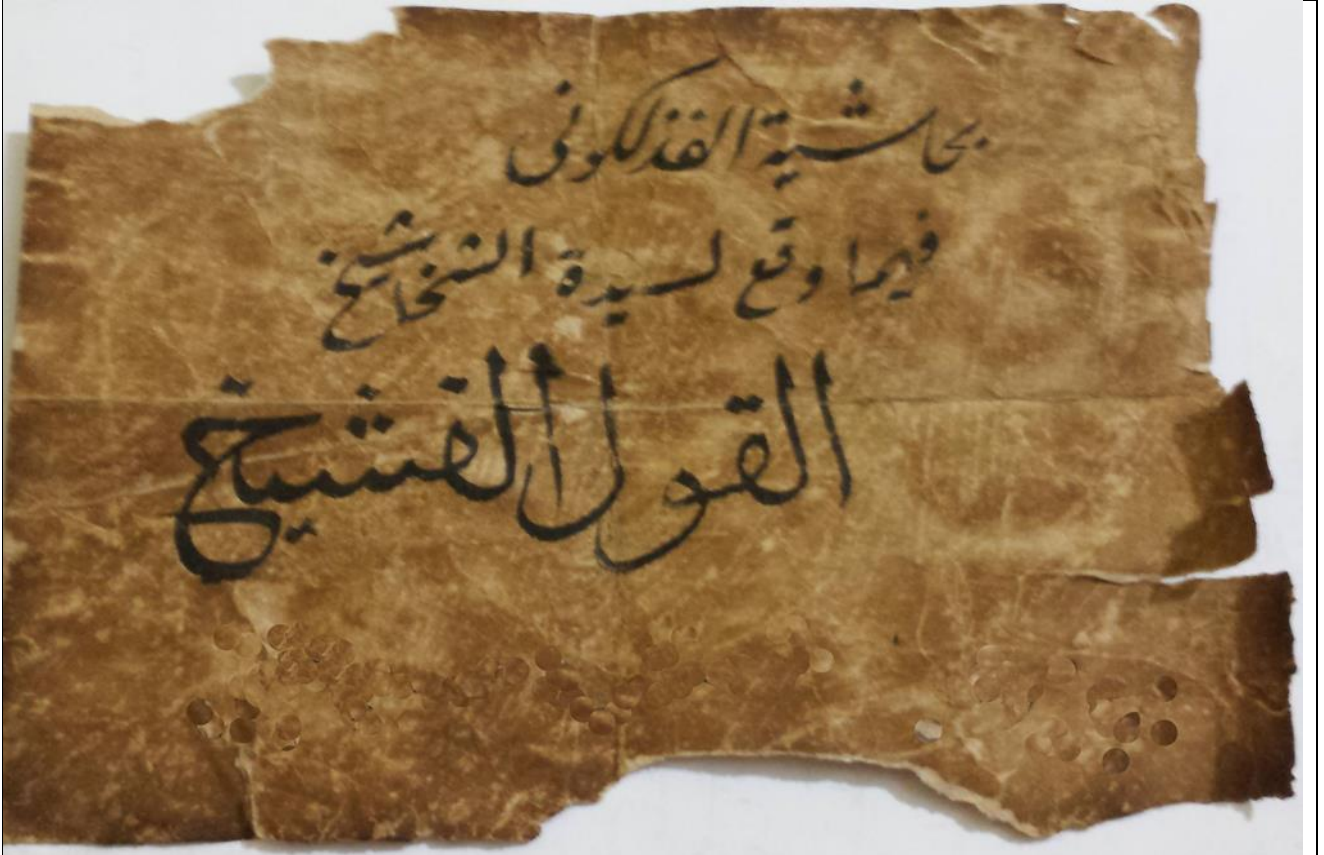 بحاشية الفذلكونى
فيما وقع لسيدة الشخاشيخ
القول الفشيخ